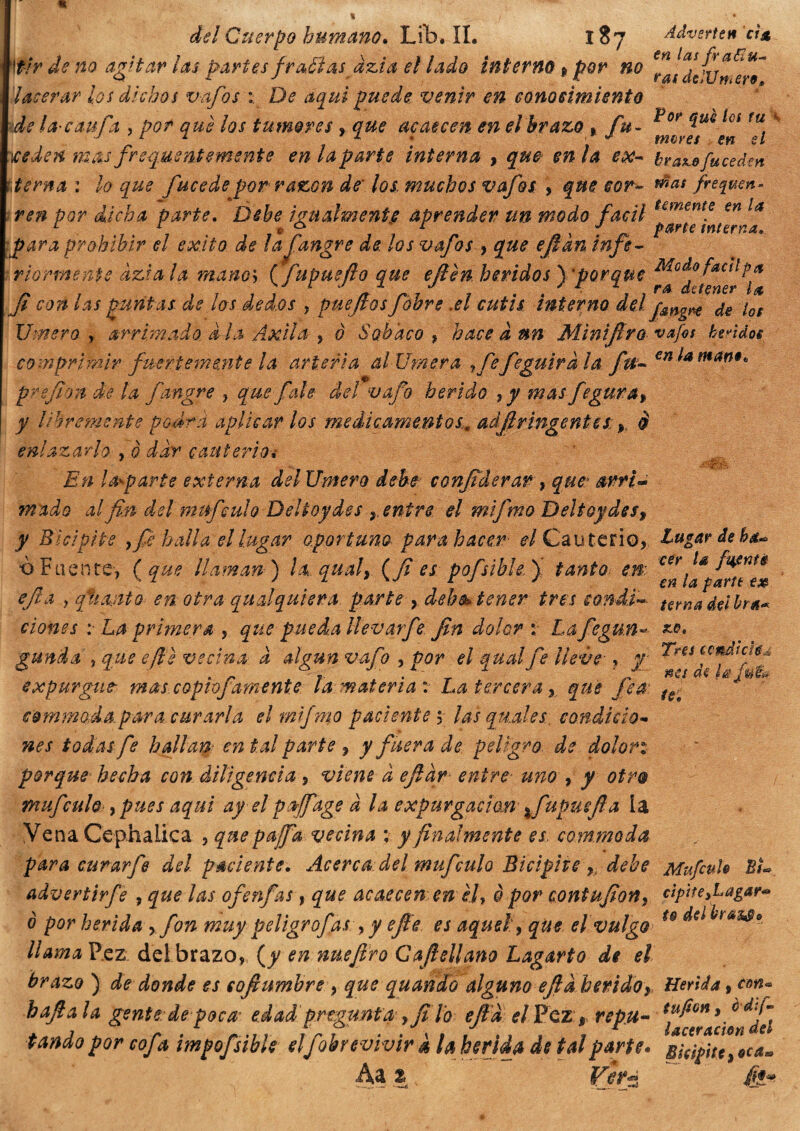 del Cuerpo humano. Lib. II. 187
tir de no agitar las partes fractas àzia el lado interno, por no
lacerar los dichos vasos : De aqui puede venir en conocimiento
de la causa , por què los tumores , que acaecen en el brazo , su-
ceden mas frequentemente en la parte interna , que en la ex-
terna : lo que sucede por razon de los muchos vasos , que cor-
ren por dicha parte. Debe igualmente aprender un modo facil
para prohibir el exito de la sangre de los vasos , que estàn infe-
riormente àzia la mano; (supuesto que estèn heridos ) porque
si con las puntas de los dedos , puestos sobre el cutis interno del
Umero , arrimado à la Axila , ò Sobaco , hace à un Ministro
comprimir fuertemente la arteria al Umera , se seguirà la su-
presion de la sangre , que sale del vaso herido , y mas segura,
y libremente podrà aplicar los medicamentos, adstringentes , ò
enlazarlo , ò dàr cauterio.
En la parte externa del Umero debe considerar , que arri-
mado al fin del musculo Deltoydes , entre el mismo Deltoydes,
y Bicipite , se halla el lugar oportuno para hacer el Cauterio,
ò Fuente, ( que llaman ) la qual, (si es possible ) tanto en
esta , quanto en otra qualquiera parte , debe tener tres condi-
ciones : La primera , que pueda llevarse sin dolor : La segun-
gunda , que estè vecina à algun vaso , por el qual se lleve , y
expurgue mas copiosamente la materia : La tercera , que sea
commoda para curarla el mismo paciente ; las quales condicio-
nes todas se hallan en tal parte , y fuera de peligro de dolor:
porque hecha con diligencia , viene à estàr entre uno , y otro
musculo , pues aqui ay el passage à la expurgacion , supuesta la
Vena Cephalica , que passa vecina : y finalmente es commoda
para curarse del paciente. Acerca del musculo Bicipite , debe
advertirse , que las ofensas , que acaecen en èl, ò por contusion,
ò por herida , son muy peligrosas , y este es aquel , que el vulgo
llama Pez del brazo, (y en nuestro Castellano Lagarto de el
brazo ) de donde es costumbre , que quando alguno està herido,
hasta la gente de poca edad pregunta , si lo està el Pez , repu-
tando por cosa impossible el sobrevivir à la herida de tal parte.
Aa 2 Verà
Advertencia
en las fractu-
ras del Umero.
Por què los tu
mores en el
brazo suceden
mas frequen-
temente en la
parte interna.
Modo facil pa
ra detener la
sangre de los
vasos heridos
en la mano.
Lugar de ha-
cer la fuente
en la parte ex
terna del bra-
zo.
Tres condicio
nes de la fuen
te.
Musculo Bi-
cipite, Lagar-
to del brazo.
Herida , con-
tusion, ò dis-
laceracion del
Bicipite, oca-
sio-